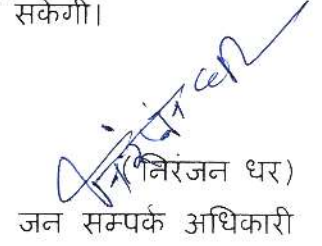 सकेगी।
निरंजन धर)
जन सम्पर्क अधिकारी